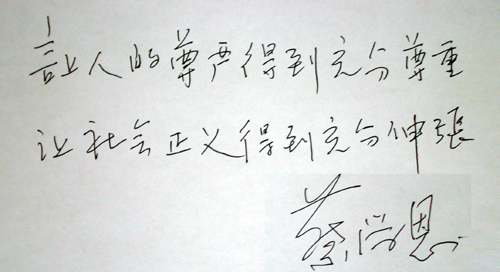 让人的尊严得到充分尊重
让社会正义得到充分伸張
蔡尚恩